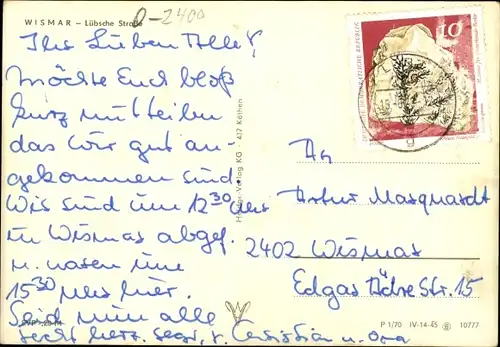 WISMAR – Lübsche Straße
D-2400
Ihr Lieben Alle!
Möchte Euch bloß
kurz mitteilen
das wir gut an-
gekommen sind.
Wir sind um 12 30 Uhr
in Wismar abgef.
u. waren um
15 30 Uhr hier.
Seid nun alle
recht herz. gegr. v. Christian u. Opa
Verlag KG · 437 Köthen
10
DEUTSCHE DEMOKRATISCHE REPUBLIK
An
Artur Marquardt
2402 Wismar
Edgar Andre Str. 15
P 1/70 IV-14-45 10777